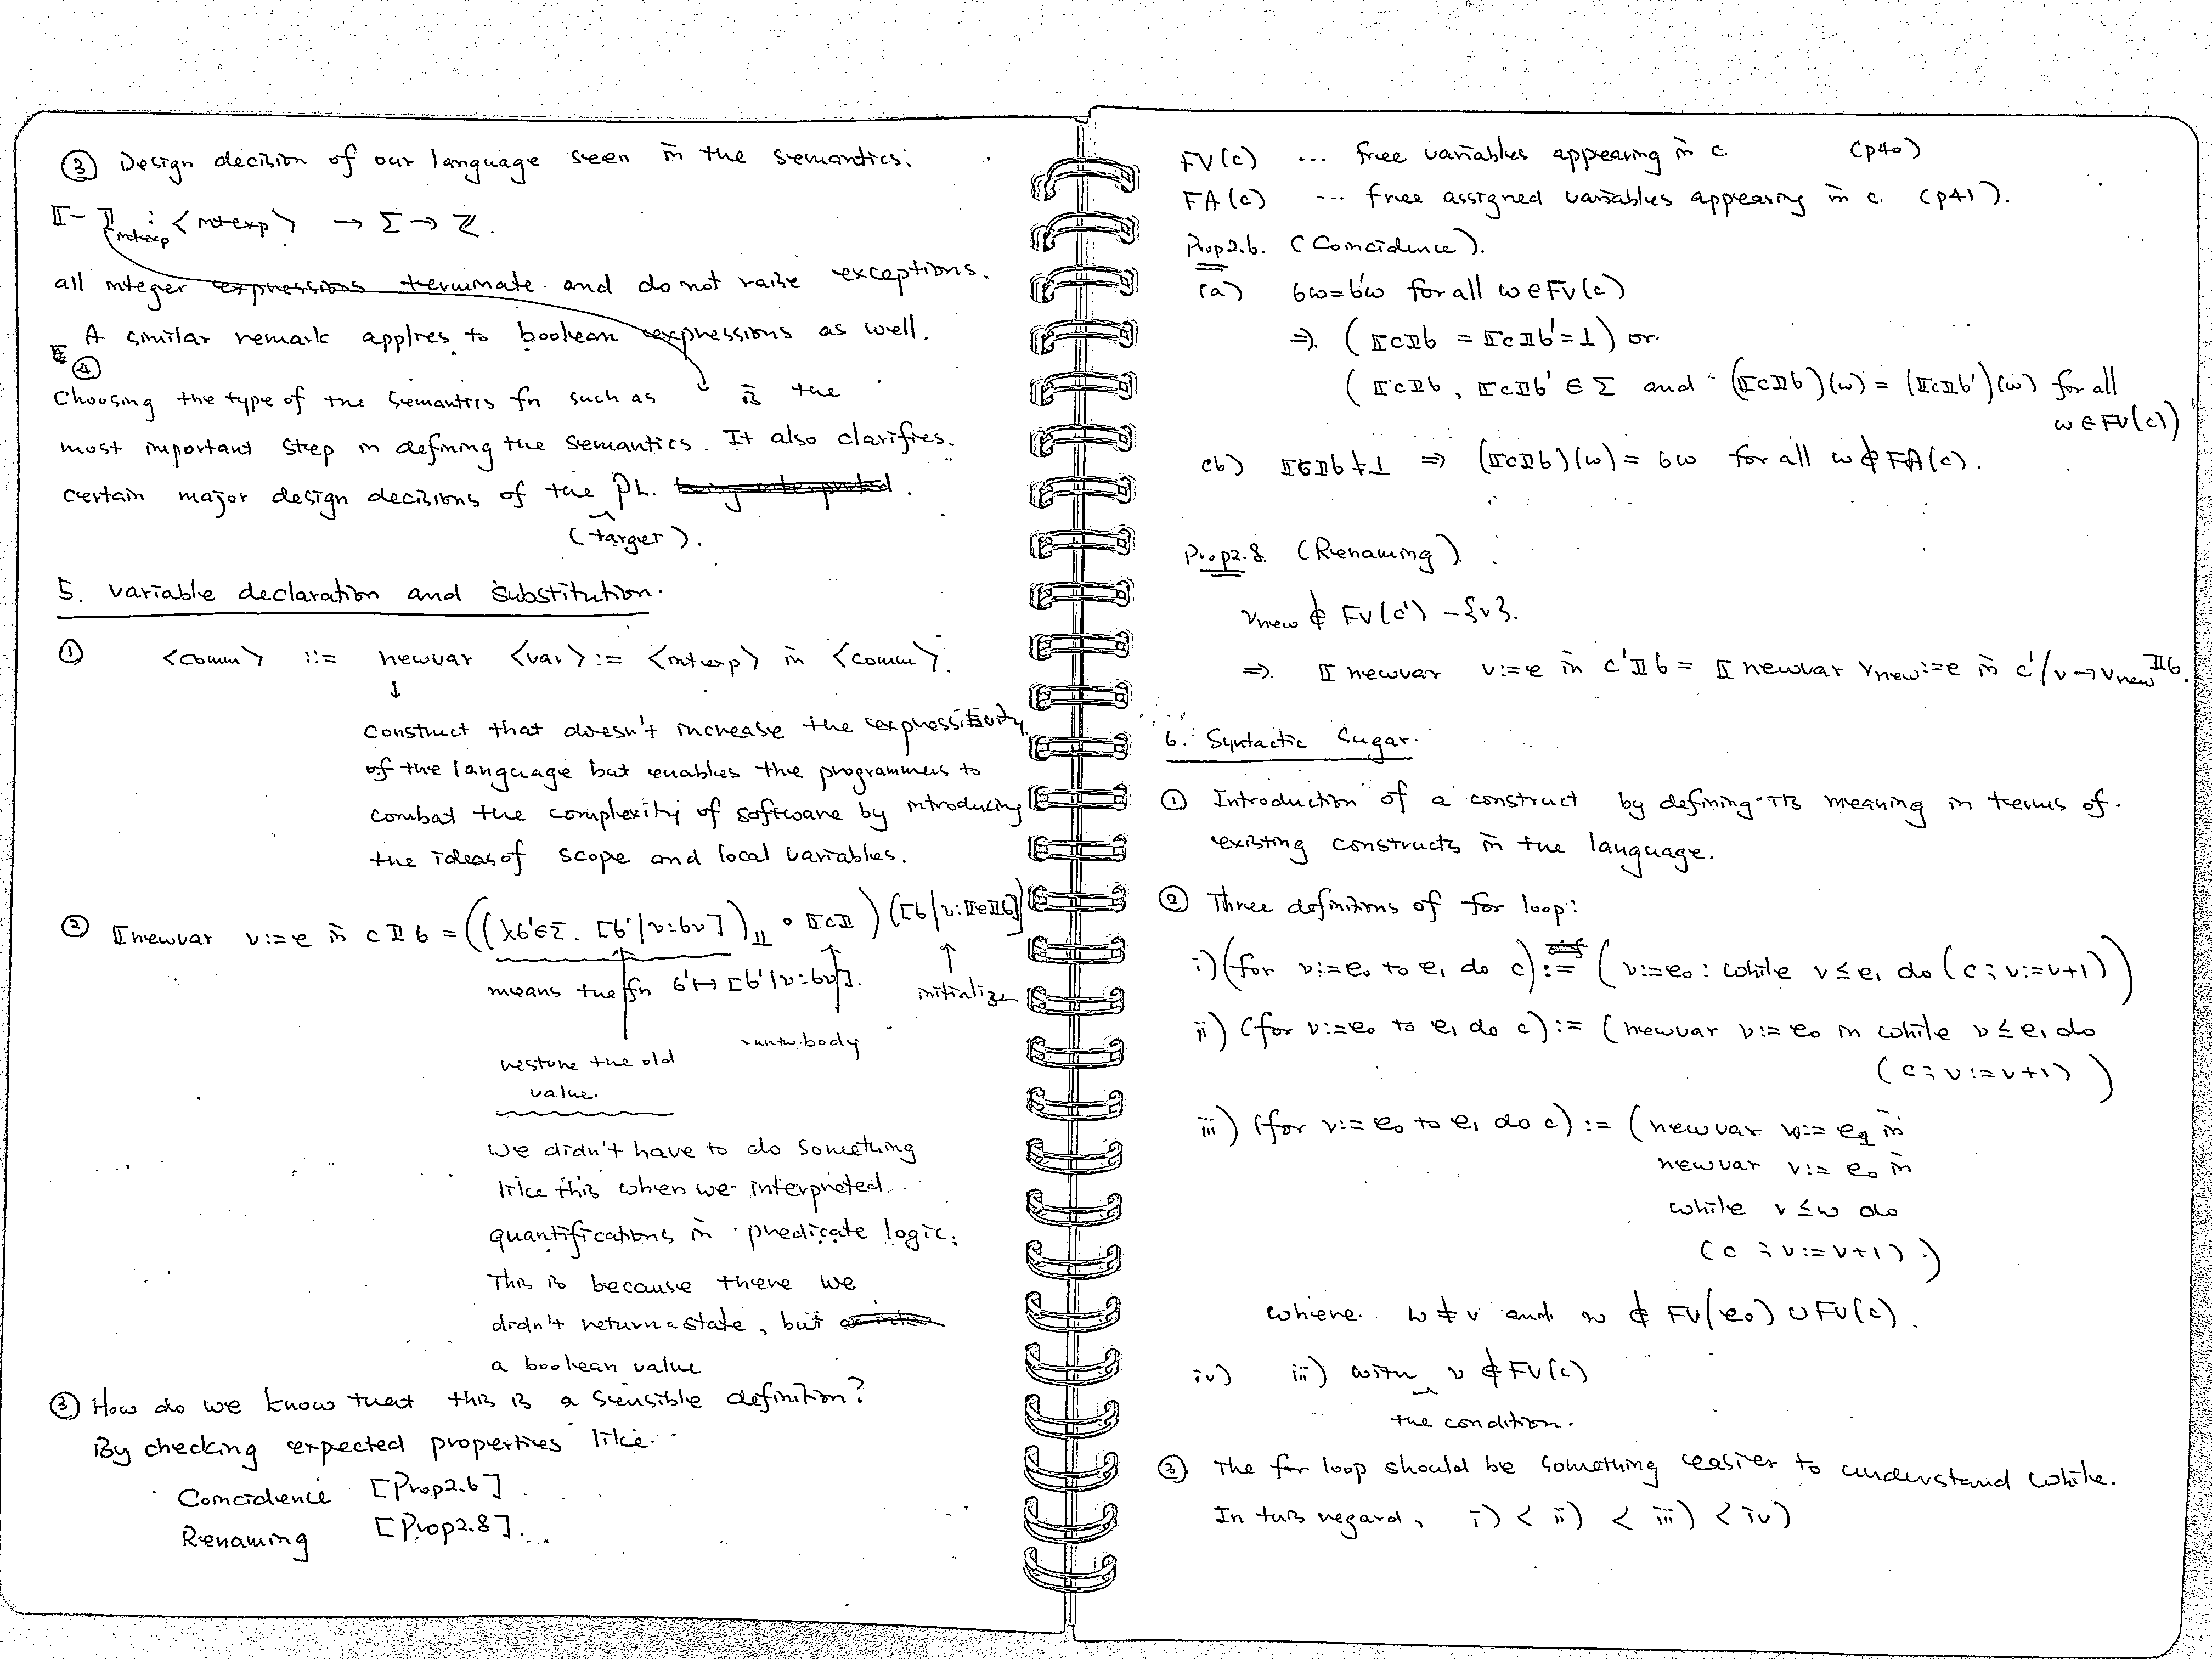 ③ Design decision of our language seen in the semantics.
⟦-⟧intexp : <intexp> → Σ → ℤ.
all integer expressions terminate and do not raise exceptions.
A similar remark applies to boolean expressions as well.
④
Choosing the type of the semantics fn such as is the
most important step in defining the semantics. It also clarifies
certain major design decisions of the PL.
(target).
5. variable declaration and substitution.
① <comm> ::= newvar <var> := <intexp> in <comm>.
↓
construct that doesn't increase the expressitivity
of the language but enables the programmers to
combat the complexity of software by introducing
the ideas of scope and local variables.
② ⟦newvar v:=e in c⟧σ = ((λσ'∈Σ. [σ'|v:σv])⊥⊥ ∘ ⟦c⟧)([σ|v:⟦e⟧σ])
means the fn σ'↦[σ'|v:σv]. initialize.
restore the old run the body
value.
we didn't have to do something
like this when we interpreted
quantifications in predicate logic.
This is because there we
didn't return a state, but
a boolean value
③ How do we know that this is a sensible definition?
By checking expected properties like
Coincidence [Prop2.6]
Renaming [Prop2.8]...
FV(c) ... free variables appearing in c. (p40)
FA(c) ... free assigned variables appearing in c. (p41).
Prop2.6. (Coincidence).
(a) σw=σ'w for all w∈FV(c)
⇒. (⟦c⟧σ = ⟦c⟧σ'=⊥) or
(⟦c⟧σ, ⟦c⟧σ' ∈ Σ and (⟦c⟧σ)(w) = (⟦c⟧σ')(w) for all
w∈FV(c))
(b) ⟦c⟧σ≠⊥ ⇒ (⟦c⟧σ)(w) = σw for all w∉FA(c).
Prop2.8. (Renaming).
vnew ∉ FV(c') -{v}.
⇒. ⟦newvar v:=e in c'⟧σ = ⟦newvar vnew:=e in c'/v→vnew⟧σ.
6. Syntactic Sugar.
① Introduction of a construct by defining its meaning in terms of
existing constructs in the language.
② Three definitions of for loop:
i) (for v:=e₀ to e₁ do c) := (v:=e₀ ; while v≤e₁ do (c ; v:=v+1))
ii) (for v:=e₀ to e₁ do c) := (newvar v:=e₀ in while v≤e₁ do
(c ; v:=v+1))
iii) (for v:=e₀ to e₁ do c) := (newvar w:=e₁ in
newvar v:=e₀ in
while v≤w do
(c ; v:=v+1))
where w≠v and w ∉ FV(e₀) ∪ FV(c).
iv) iii) with v∉FV(c)
the condition.
③ The for loop should be something easier to understand while.
In this regard, i) < ii) < iii) < iv)